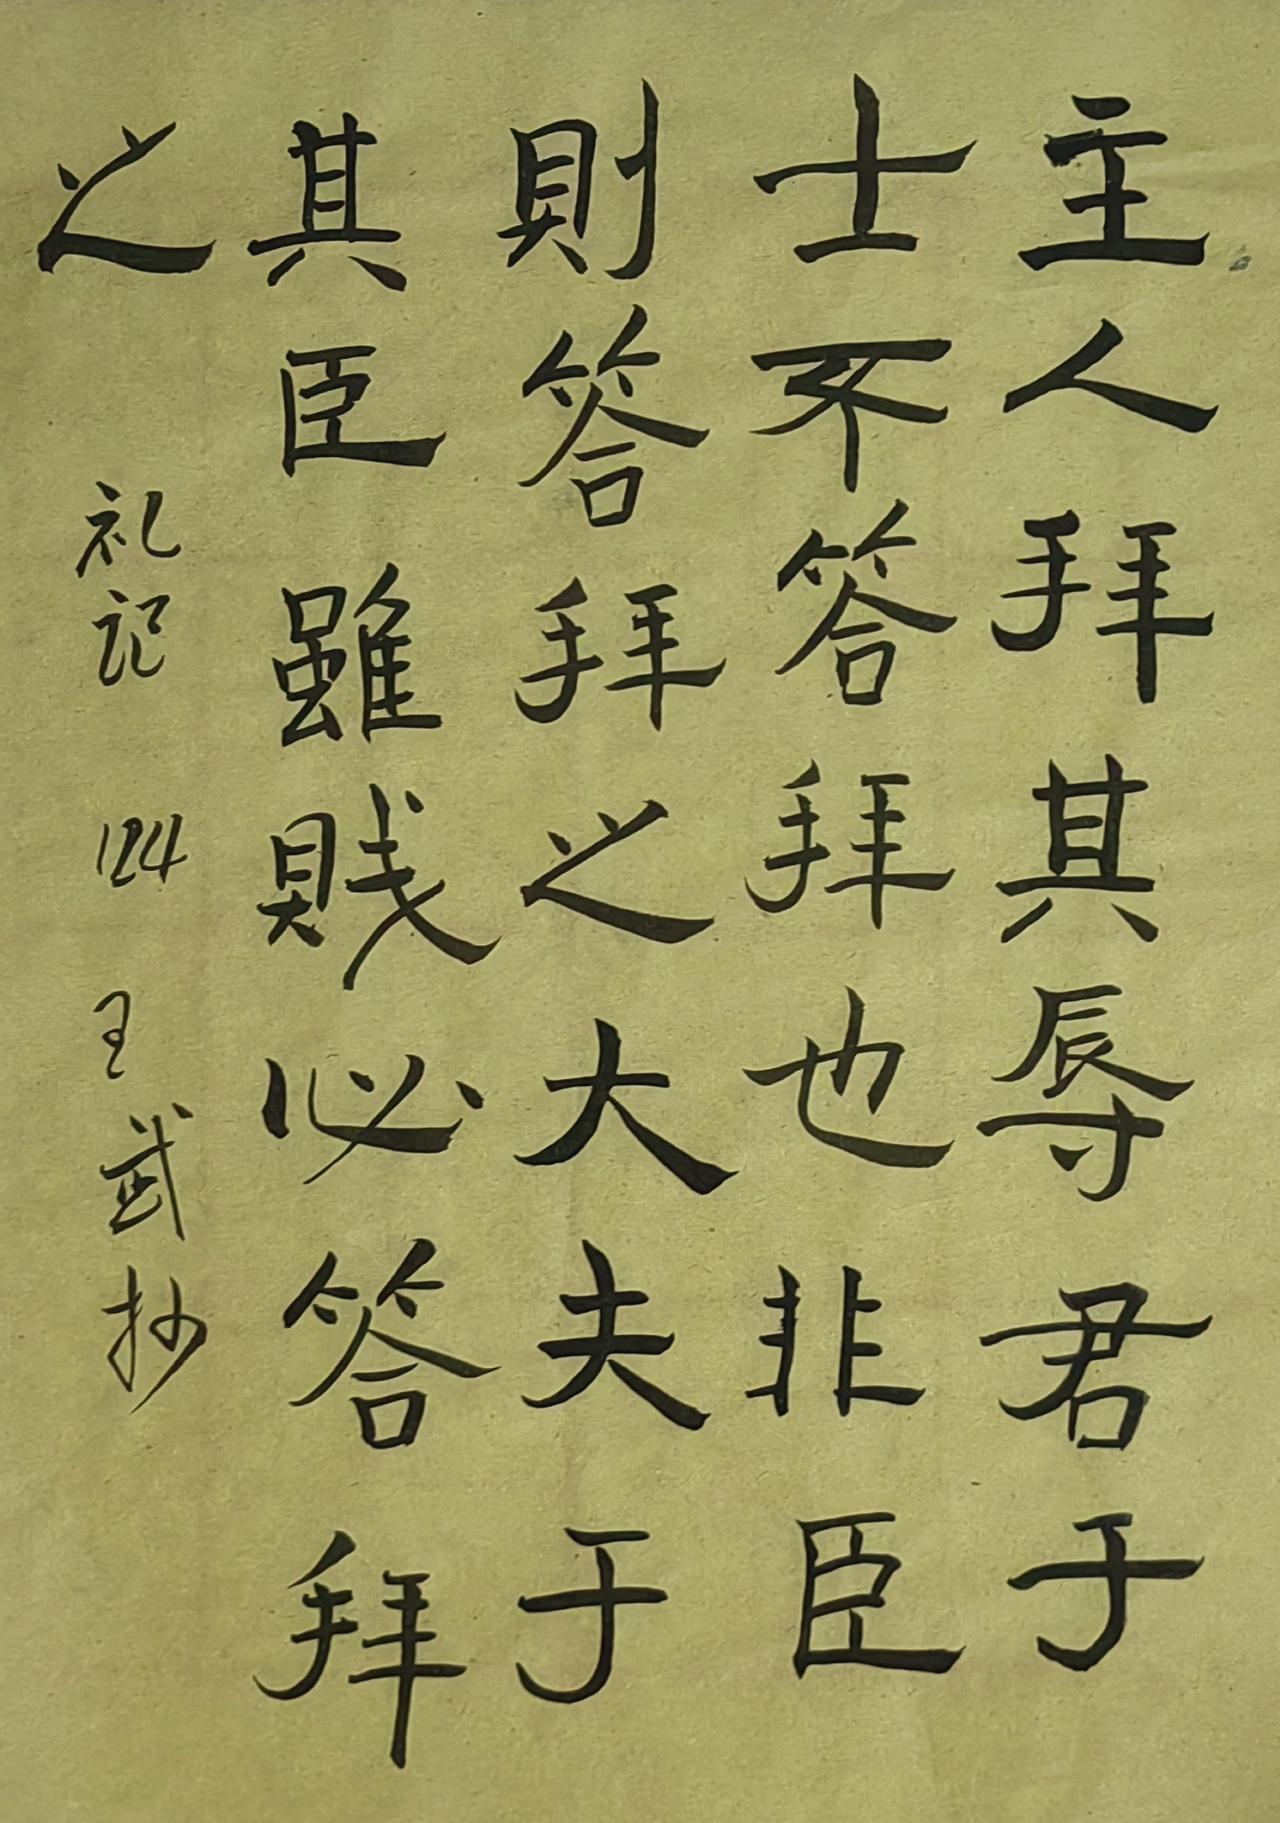 主人拜其辱君于
士不答拜也非臣
則答拜之大夫于
其臣雖賤必答拜
之
礼记 124 王武抄